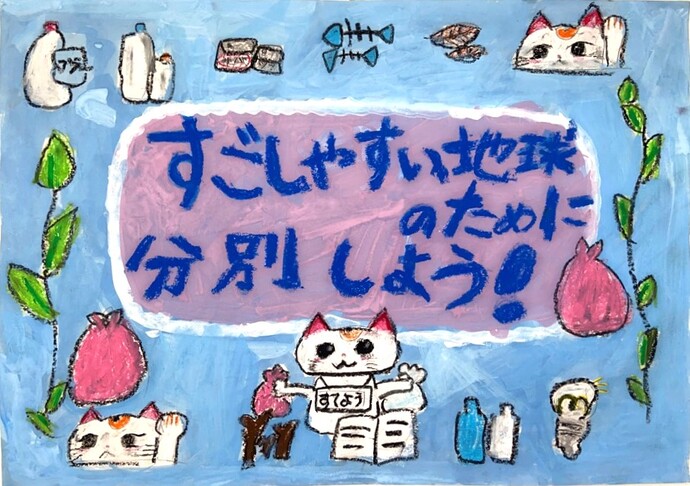 すごしやすい地球
のために
分別しよう!
すてよう